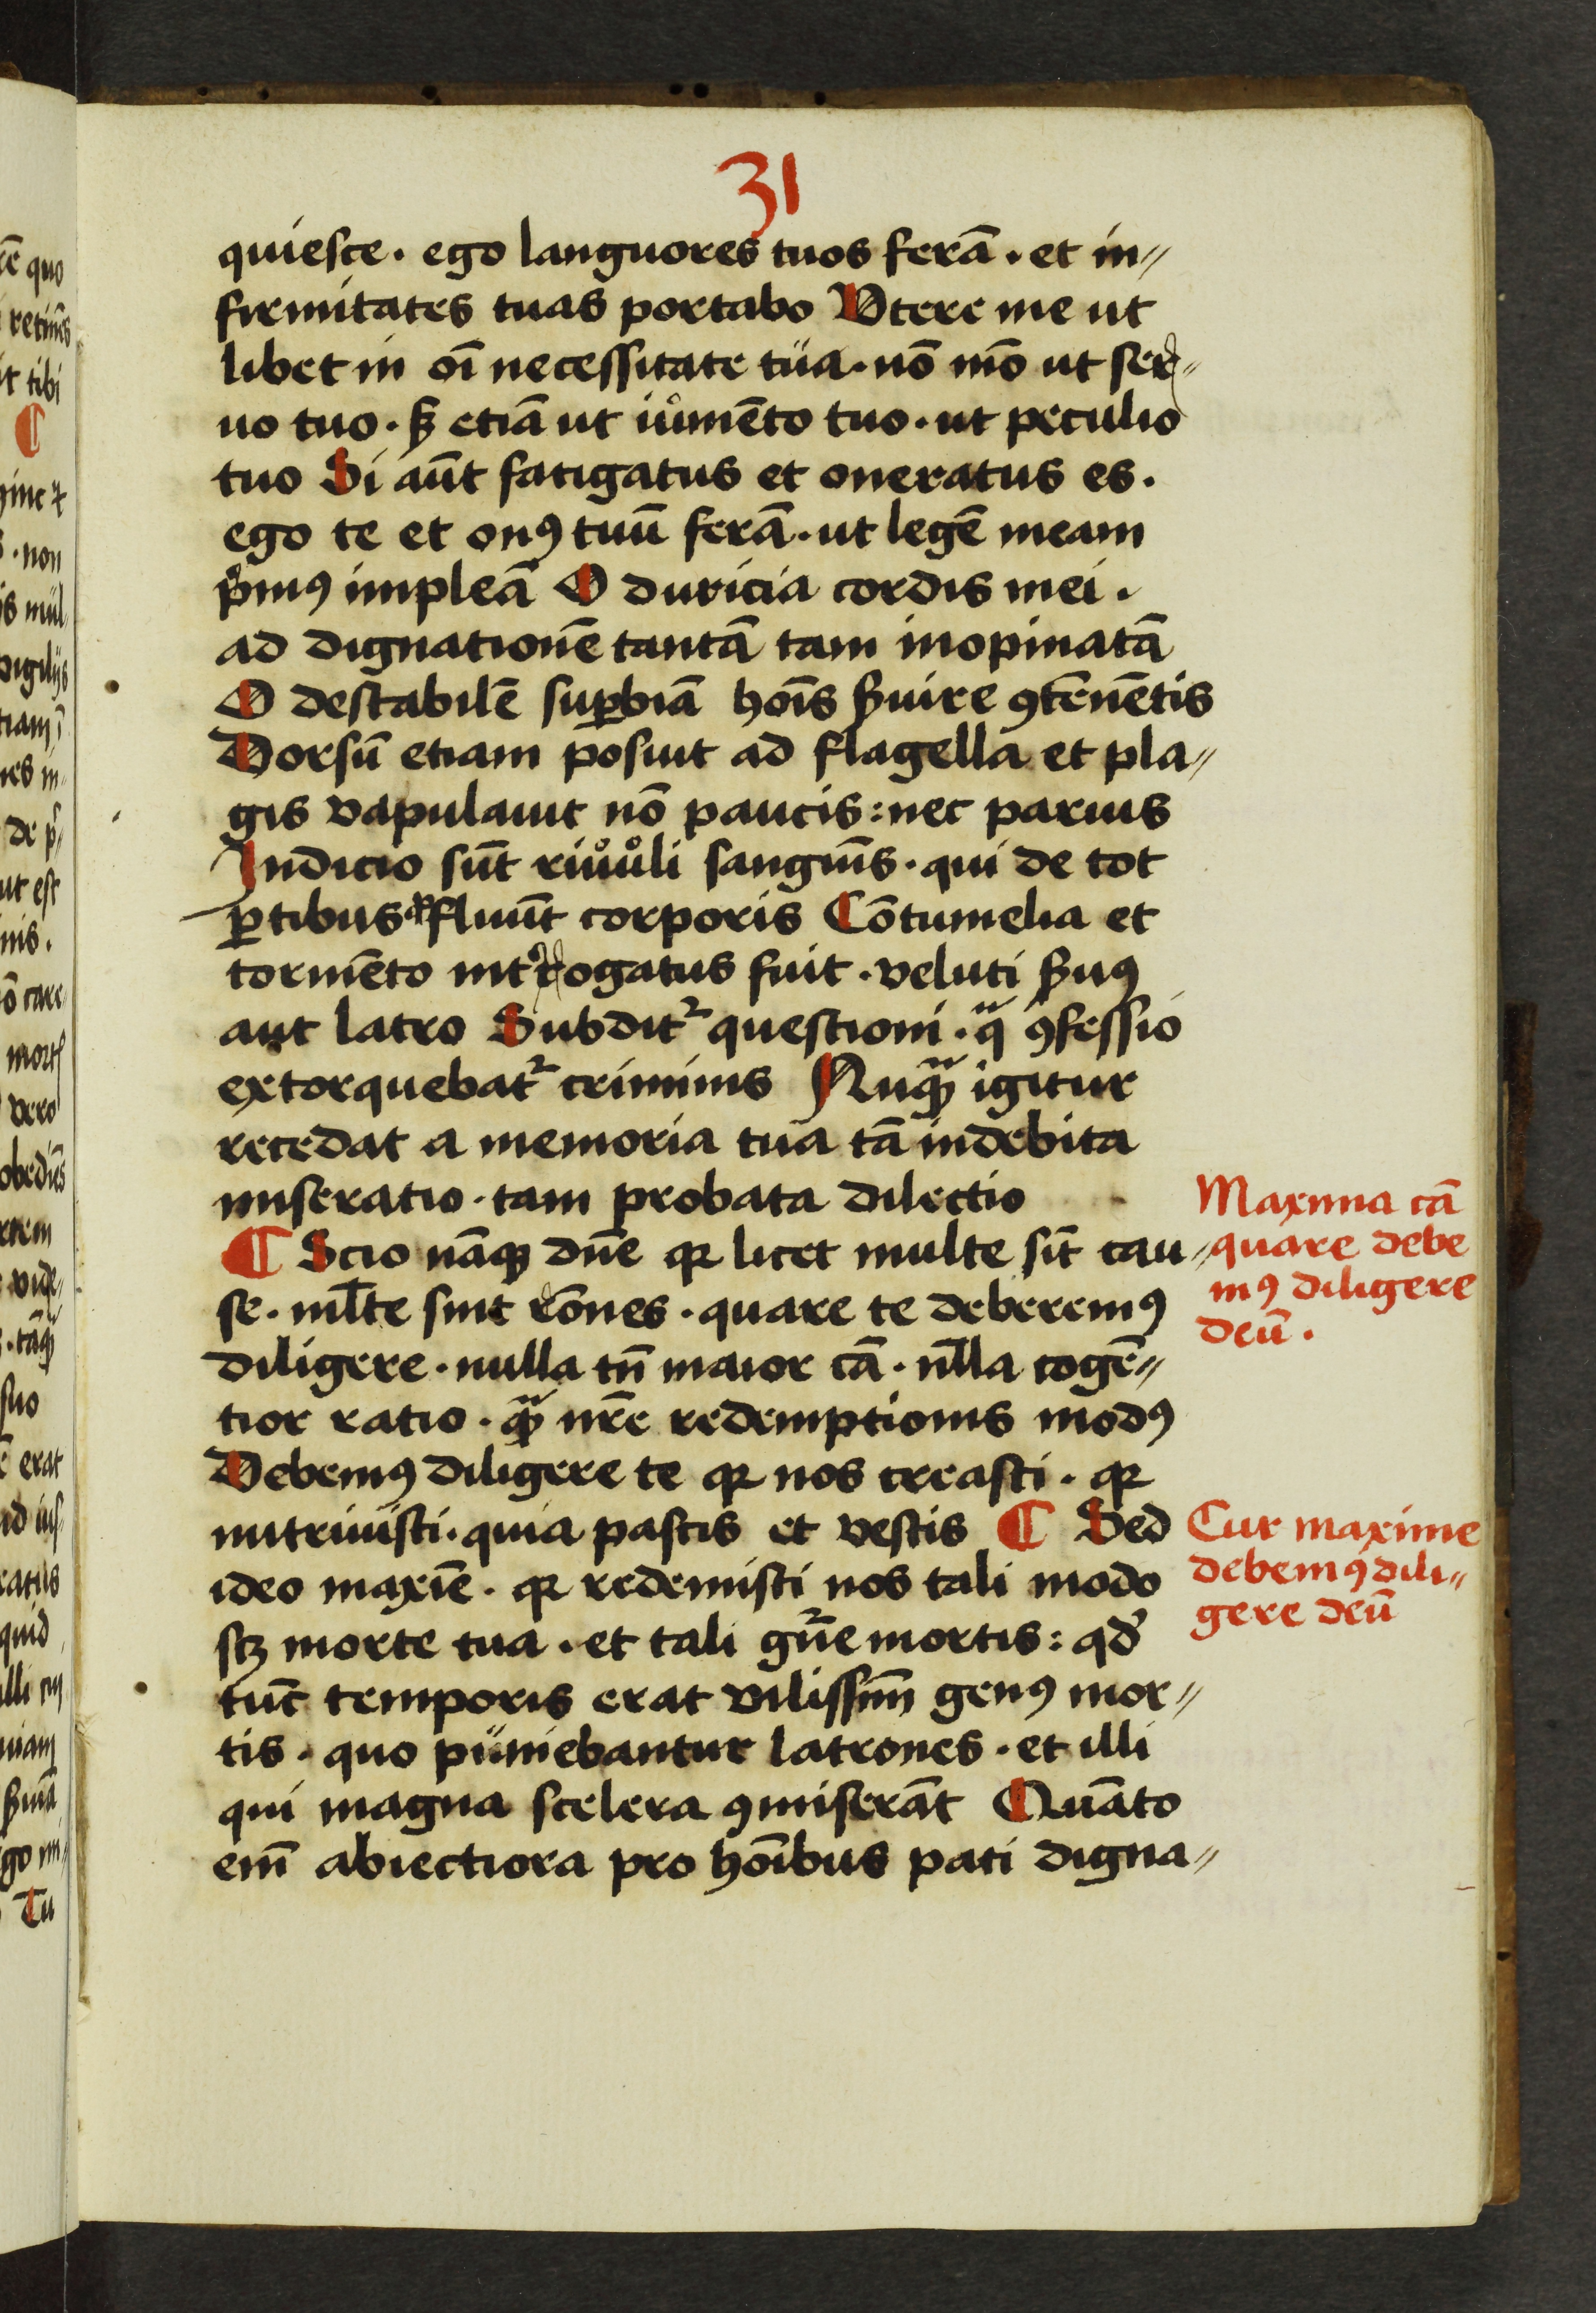 31
quiesce · ego languores tuos ferā · et in⸗
firmitates tuas portabo Vtere me ut
libet in oī necessitate tua · nō mō ut ser⸗
uo tuo · sꝫ etiā ut iumēto tuo · ut peculio
tuo Si aūt fatigatus et oneratus es ·
ego te et onꝯ tuū ferā · ut legē meam
pͥmꝯ impleā O duricia cordis mei ·
ad dignationē tantā tam inopinatā
O destabilē suꝑbiā hoīs ẜuire ꝯtēnētis
Dorsū etiam posuit ad flagella et pla⸗
gis vapulauit nō paucis : nec paruis
Indicio sūt riuuli sanguīs · qui de tot
ꝑtibus fluūt corporis Cōtumelia et
tormēto intͤrogatus fuit · veluti ẜuꝯ
aut latro Subditᷣ questioni · qͣ ꝯfessio
extorquebatᷣ criminis Nuqͣꝫ igitur
recedat a memoria tua tā indebita
miseratio · tam probata dilectio
¶ Scio nāqꝫ dn̄e qꝛ licet multe sīt cau⸗
se · ml̄te sint rōnes · quare te deberemꝯ
diligere · nulla tn̄ maior cā · nl̄la cogē⸗
tior ratio · qͣꝫ nr̄e redemptionis modꝯ
Debemꝯ diligere te qꝛ nos creasti · qꝛ
nutriuisti · quia pascis et vestis ¶ Sed
ideo maxīe · qꝛ redemisti nos tali modo
scꝫ morte tua · et tali gn̄e mortis : qd̓
tūc temporis erat vilissīm genꝯ mor⸗
tis · quo puniebantur latrones · et illi
qui magna scelera ꝯmiserāt Quāto
em̄ abiectiora pro hoībus pati digna⸗
Maxima cā
quare debe
mꝯ diligere
deū ·
Cur maxime
debemꝯ dili⸗
gere deū